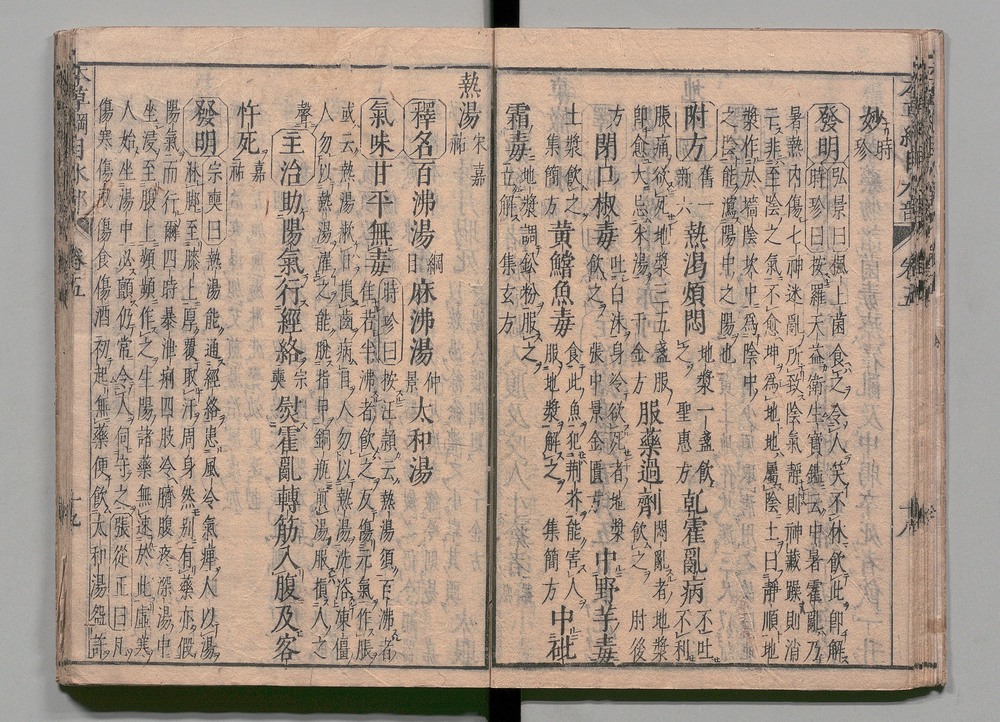 妙時珍
發明弘景曰楓上菌食之令人笑不休飲此即解
時珍曰按羅天益衛生寶鑑云中暑霍亂乃
暑熱內傷七神迷亂所致陰氣靜則神藏躁則消
亡非至陰之氣不愈坤為地地屬陰土曰靜順地
漿作於墻陰坎中為陰中
之陰能瀉陽中之陽也
附方舊一新六熱渴煩悶地漿一盞飲之聖惠方乾霍亂病不吐不利
脹痛欲死地漿三五盞服
即愈大忌米湯千金方服藥過劑悶亂者地漿飲之肘後
方閉口椒毒吐白沫身冷欲死者地漿飲之張仲景金匱方中野芋毒
土漿飲之集簡方黃鱔魚毒食此魚犯荊芥能害人服地漿解之集簡方中砒
霜毒地漿調鉛粉服之立解集玄方
熱湯宋嘉祐
釋名百沸湯綱目麻沸湯仲景太和湯
氣味甘平無毒時珍曰按汪頴云熱湯須百沸者佳若半沸者飲之反傷元氣作脹
或云熱湯漱口損齒病目人勿以熱湯洗浴凍僵
人勿以熱湯灌之能脫指甲銅瓶煎湯服損人之
聲主治助陽氣行經絡宗奭熨霍亂轉筋入腹及客
忤死嘉祐
發明宗奭曰熱湯能通經絡患風冷氣痺人以湯
淋脚至膝上厚覆取汗周身然別有藥亦假
陽氣而行爾四時暴泄痢四肢冷臍腹疼深湯中
坐浸至腹上頻頻作之生陽諸藥無速於此虛寒
人始坐湯中必顫仍常令人伺守之張從正曰凡
傷寒傷風傷食傷酒初起無藥便飲太和湯盌許
本草綱目水部 卷五
十八
十九